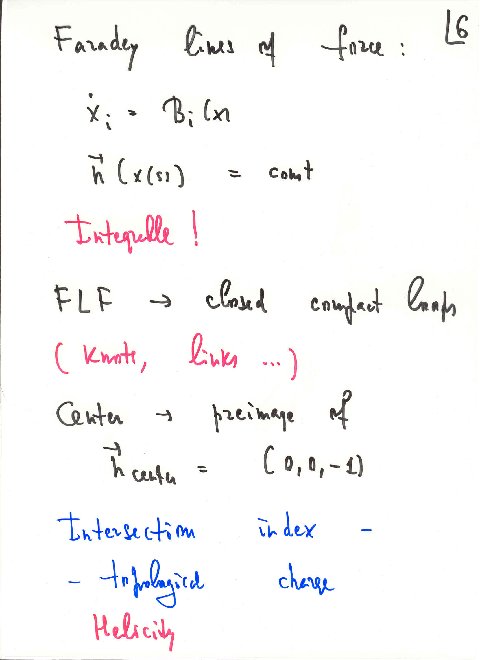 16
Faraday lines of force :
ẋᵢ = Bᵢ(x)
n⃗ (x(s)) = const
Integrable !
FLF → closed compact loops
( Knots, links ... )
Center → preimage of
n⃗ center = (0,0,-1)
Intersection index -
- topological charge
Helicity